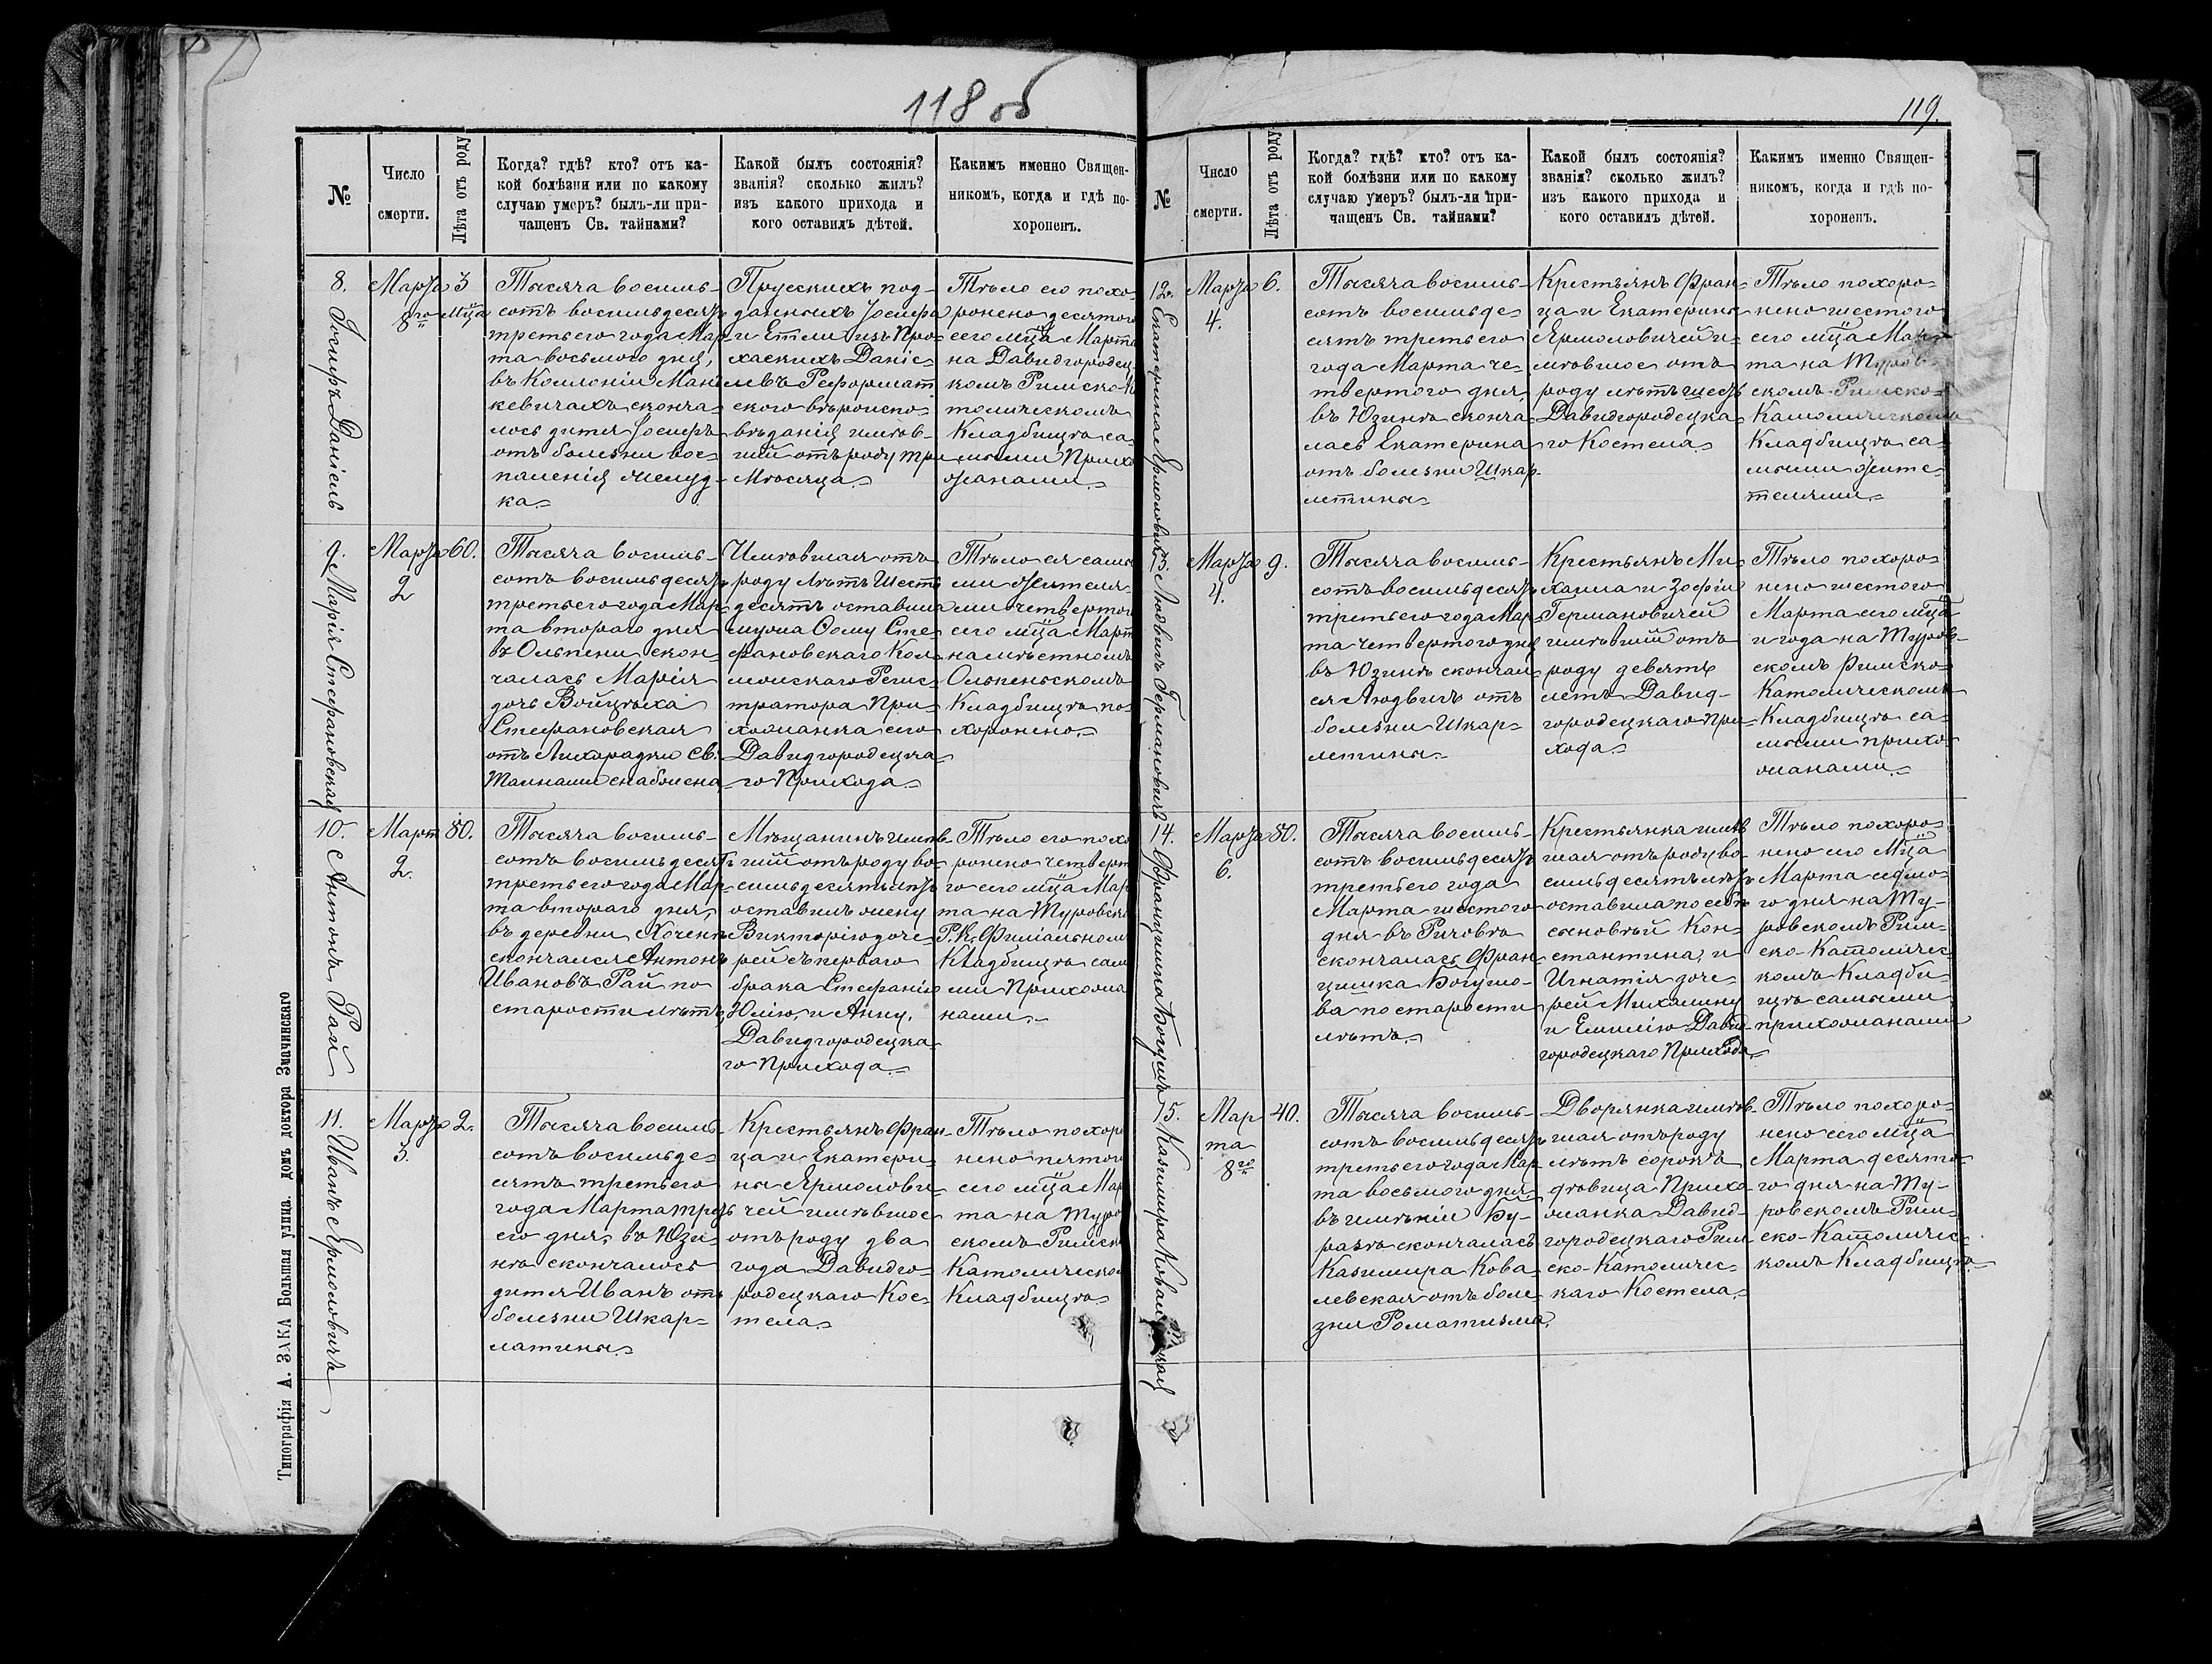 118 об
№
Число
смерти.
Лѣта отъ роду
Когда? гдѣ? кто? отъ ка-
кой болѣзни или по какому
случаю умеръ? былъ-ли при-
чащенъ Св. тайнами?
Какой былъ состоянія?
званія? сколько жилъ?
изъ какого прихода и
кого оставилъ дѣтей.
Какимъ именно Священ-
никомъ, когда и гдѣ по-
хороненъ.
8.
Іосифъ Даніель
Марта
8го
3
мца
Тысяча восемь-
сотъ восемьдесятъ
третьего года Мар-
та восьмого дня,
въ Колоніи Мань-
кевичахъ сконча-
лось дитя Іосифъ
отъ болезни вос-
паленія желуд-
ка.
Прусскихъ под-
данныхъ Іосифа
и Етли изъ Про-
хаскихъ Даніе-
левъ Реформат
ского вѣроиспо-
вѣданія имѣв-
шій отъ роду три
Мѣсяца.
Тѣло его похо-
ронено десятого
сего мца Марта
на Давидгородец-
комъ Римско-К
толическомъ
Кладбищѣ са-
мыми Прихо
жанами.
9.
Марія Стефановская
Марта
2
60.
Тысяча восемь-
сотъ восемьдесятъ
третьего года Мар-
та второго дня
въ Ольпени скон-
чалась Марія
дочь Войцѣха
Стефановская
отъ Лихорадки Св.
Таинами снабжена
Имѣвшая отъ
роду лѣтъ Шесть
десятъ оставила
мужа Ѳому Сте-
фановскаго Кол-
лежскаго Регис-
тратора При-
хожанка сего
Давидгородецка-
го Прихода.
Тѣло ея самы
ми жителя-
ми четвертого
сего мца Март
на мѣстномъ
Ольпеньскомъ
Кладбищѣ по-
хоронено.
10.
Антонъ Рай
Март
2.
80.
Тысяча восемь-
сотъ восемьдесятъ
третьего года Мар-
та второго дня,
въ деревни Хоченъ
скончался Антонъ
Ивановъ Рай по
старости лѣтъ,
Мѣщанинъ имѣв-
шій отъ роду во-
семьдесятъ лѣтъ
оставилъ жену
Викторію доче-
рей съ перваго
брака Стефанію
Юлію, и Анну,
Давидгородецка-
го Прихода.
Тѣло его похо
ронено четверт
го сего мца Мар
та на Туровск
Р. К. Филіальном
Кладбищѣ самы
ми Прихожа
нами.
11.
Иванъ Ярмоловичъ
Марта
3.
2.
Тысяча восемь-
сотъ восемьде-
сятъ третьего
года Марта треть
его дня, въ Юзи-
нѣ скончалось
дитя Иванъ отъ
болезни Шкар-
латины.
Крестьянъ Фран-
ца и Екатери-
ны Ярмолови-
чей имѣвшое
отъ роду два
года Давидго-
родецкаго Кос-
тела.
Тѣло похоро
нено пятого
сего мца Мар
та на Туров
скомъ Римско
Католическом
Кладбищѣ.
Типографія А. ЗАКА Большая улица. домъ доктора Значинскаго
119.
№
Число
смерти.
Лѣта отъ роду
Когда? гдѣ? кто? отъ ка-
кой болѣзни или по какому
случаю умеръ? былъ-ли при-
чащенъ Св. тайнами?
Какой былъ состоянія?
званія? сколько жилъ?
изъ какого прихода и
кого оставилъ дѣтей.
Какимъ именно Священ-
никомъ, когда и гдѣ по-
хороненъ.
12.
Екатерина Ярмоловичъ
Марта
4.
6.
Тысяча восемь-
сотъ восемьде-
сятъ третьего
года Марта че-
твертого дня,
въ Юзинѣ сконча-
лась Екатерина
отъ болезни Шкар-
летины
Крестьянъ Фран-
ца и Екатерины
Ярмоловичей и-
мѣвшое отъ
роду лѣтъ шесть
Давидгородецка-
го Костела.
Тѣло похоро-
нено шестого
сего мца Мар-
та на Туров-
скомъ Римско-
Католическомъ
Кладбищѣ са-
мыми жите-
телями.
13.
Людвигъ Германовичъ
Марта
4.
9.
Тысяча восемь-
сотъ восемьдесятъ
третьего года Мар-
та четвертого дня
въ Юзинѣ скончал-
ся Людвигъ отъ
болезни Шкар-
летины.
Крестьянъ Ми-
хаила и Зофіи
Германовичей
имѣвшій отъ
роду девять
летъ Давид-
городецкаго При-
хода.
Тѣло похоро-
нено шестого
Марта сего мца
и года на Туров-
скомъ Римско-
Католическомъ
Кладбищѣ са-
мыми прихо-
жанами.
14.
Францишка Богушъ
Марта
6.
80.
Тысяча восемь-
сотъ восемьдесятъ
третьего года
Марта шестого
дня въ Ричовѣ
скончалась Фран-
цишка Богушо-
ва по старости
лѣтъ.
Крестьянка имѣв
шая отъ роду во-
семьдесятъ лѣтъ
оставила по себѣ
сыновьей Кон-
стантина, и
Игнатія доче-
рей Михалину
и Емилію Давид-
городецкаго Прихода.
Тѣло похоро-
нено сего Мца
Марта седмо-
го дня на Ту-
ровскомъ Рим-
ско-Католичес-
комъ Кладби-
щѣ самыми
прихожанами
15.
Казимира Ковалевская
Мар
та
8го
40.
Тысяча восемь-
сотъ восемьдесятъ
третьего года Мар-
та восьмого дня,
въ имѣніи Бу-
разѣ скончалась
Казимира Кова-
левская отъ боле-
зни Роматизма.
Дворянка имѣв-
шая отъ роду
лѣтъ сорокъ
дѣвица Прихо-
жанка Давид-
городецкаго Рим
ско-Католичес-
каго Костела.
Тѣло похоро-
нено сего мца
Марта десято-
го дня на Ту-
ровскомъ Рим-
ско-Католичес-
комъ Кладбищѣ.